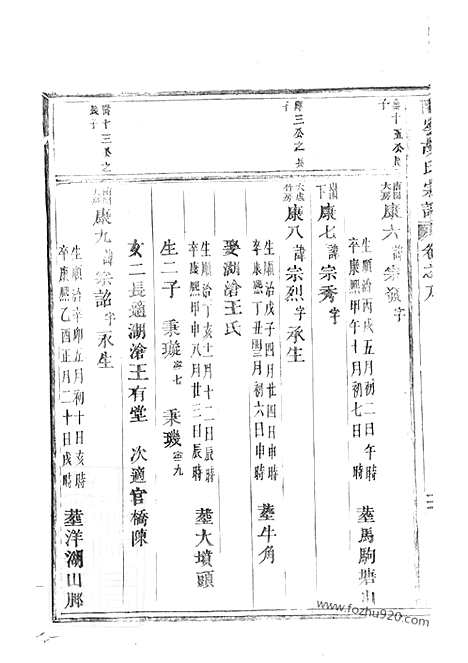 十五公長子
南陽大房 康六 諱宗 字
生順治丙戌五月初二日午時
卒康熙甲午十月初七日
塟馬駒塘山
南陽 下 康七 諱宗秀 字
康三公之長子
大成竹房 康八 諱宗烈 字永生
生順治戊子四月廿四日申時
卒康熙丁丑四月初六日申時
塟牛角
娶湖滄王氏
生順治丁亥十一月十二日辰時
卒康熙甲申八月廿三日辰時
塟大墳頭
生二子 秉璇 七 秉璣 九
女二長適湖滄王有堂 次適官橋陳
十三公之長子
南陽大房 康九 諱宗詔 字永生
生順治辛卯五月初十日亥時
卒康熙乙酉正月二十日戌時
塟洋湖山脚
www.fozhu920.com